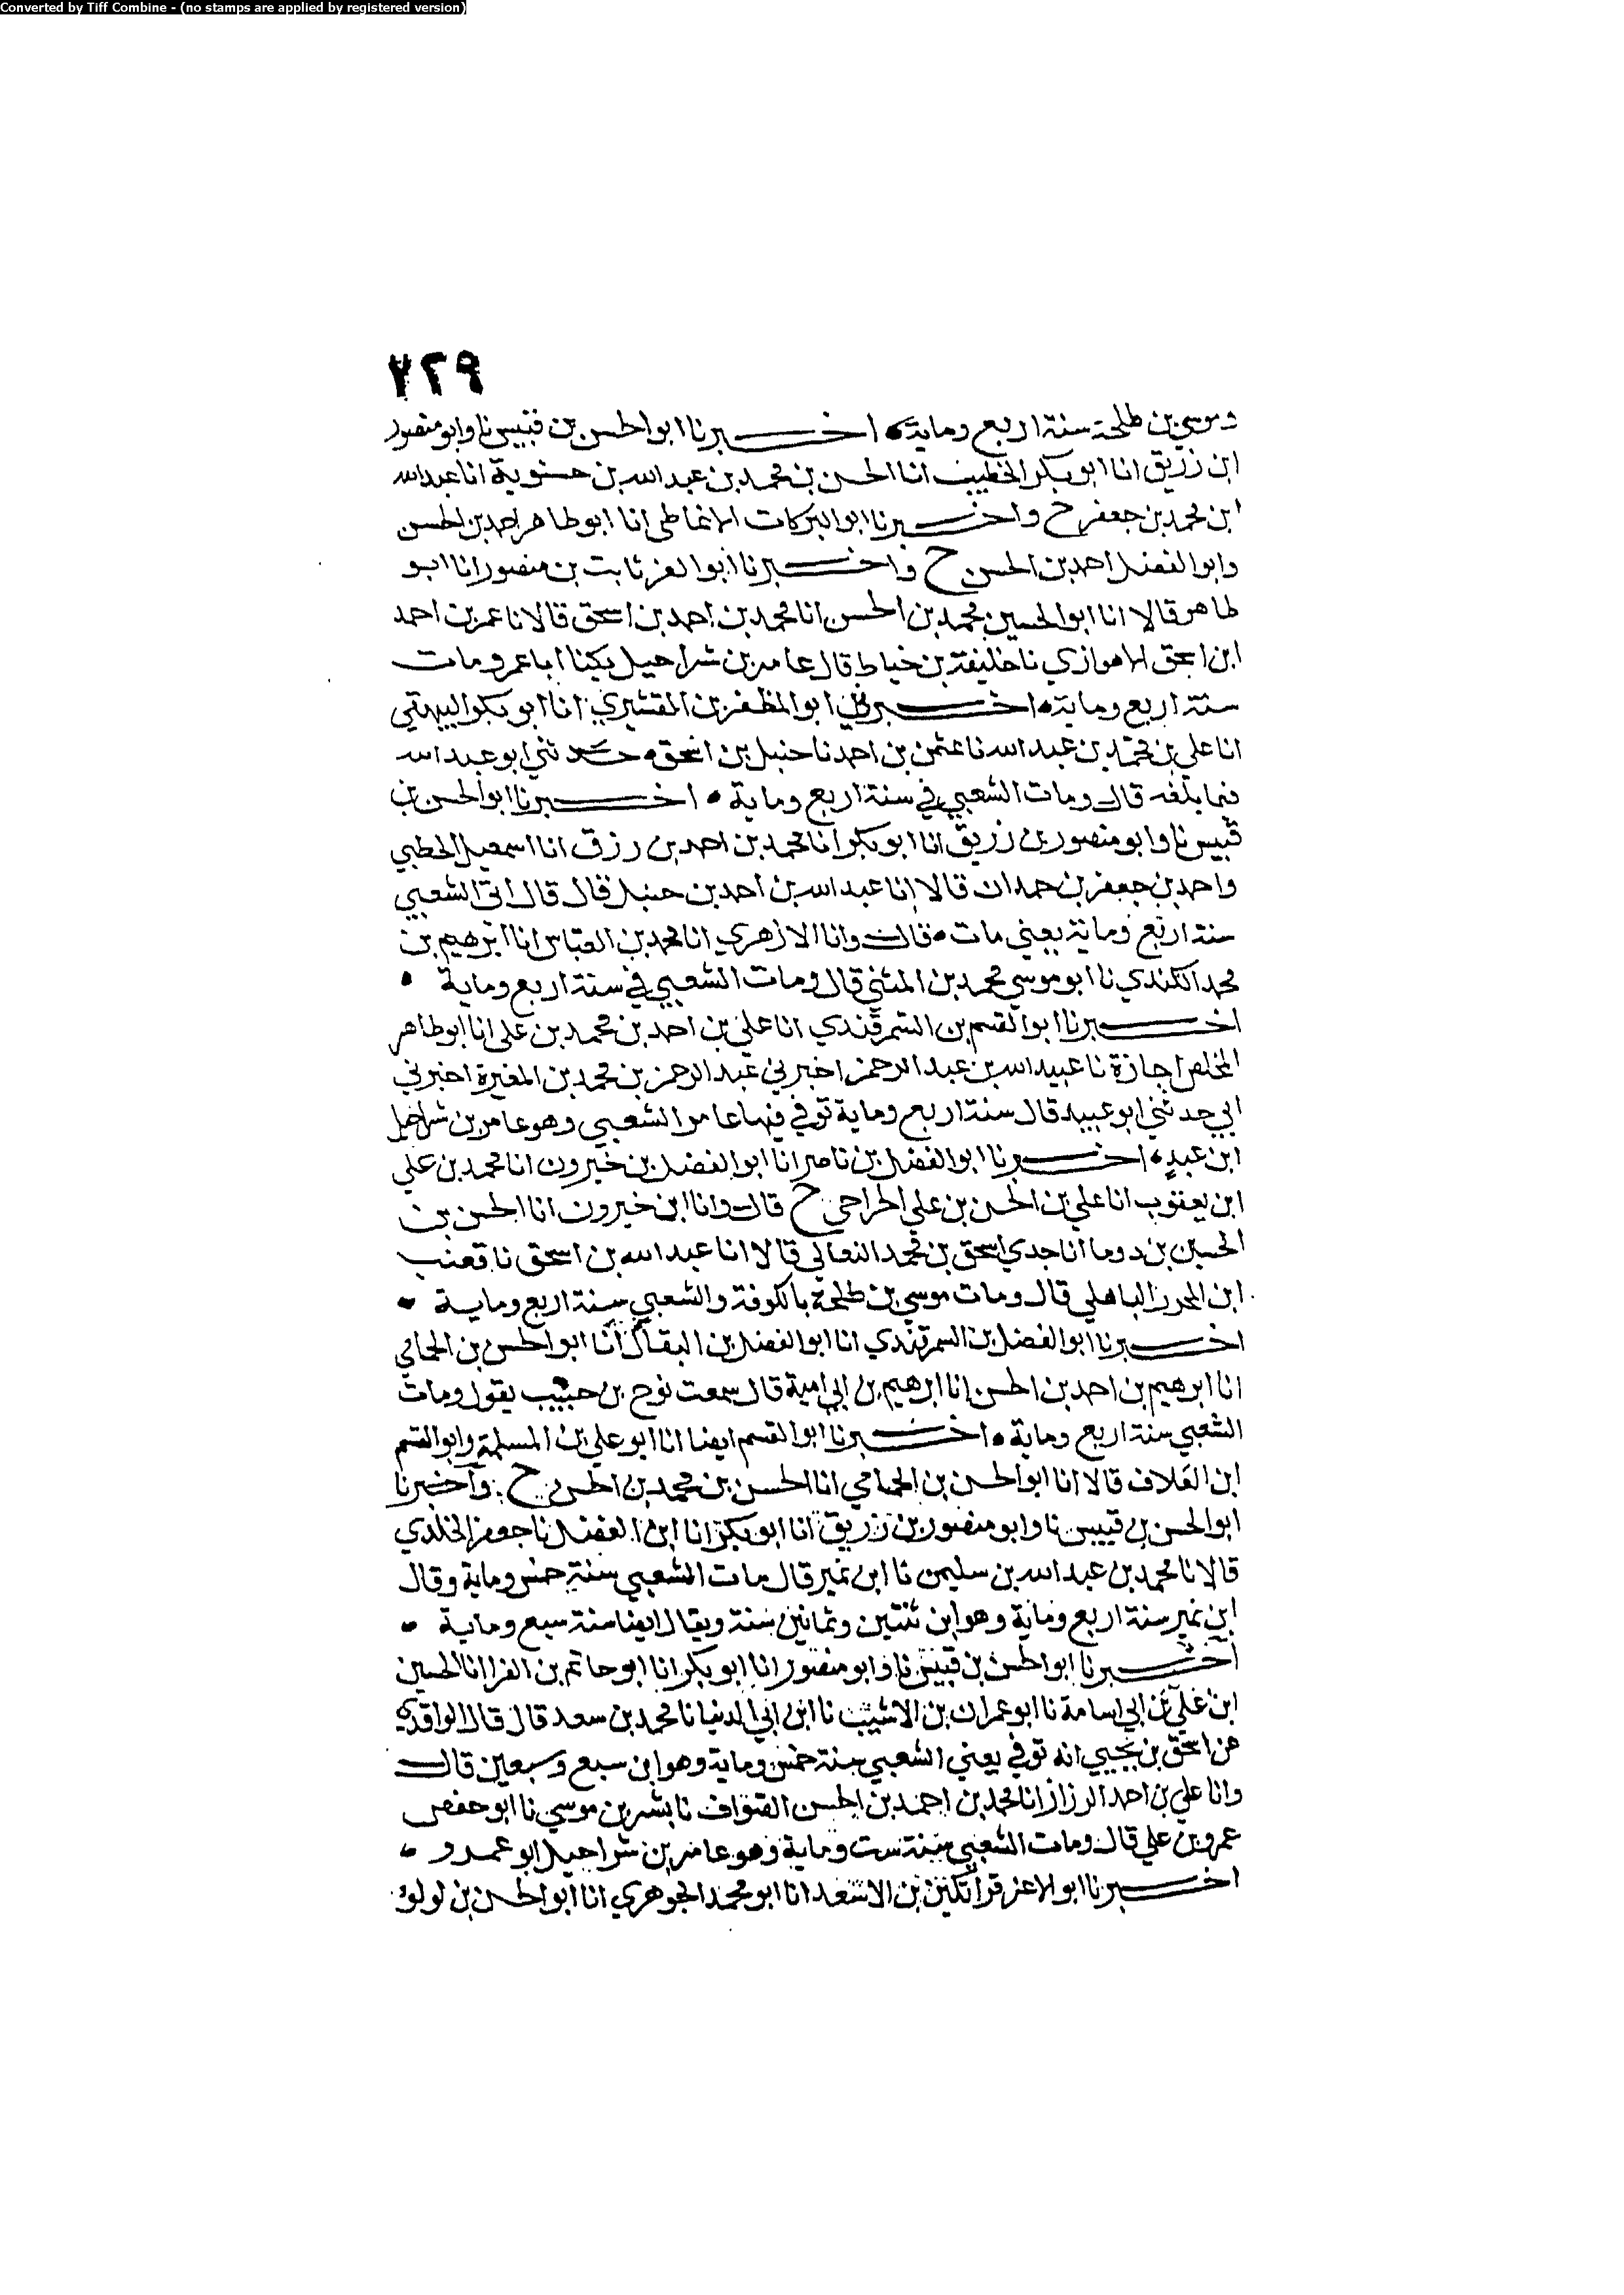 Converted by Tiff Combine - (no stamps are applied by registered version)
٢٢٩
وموسي بن طلحة سنة اربع وماية • اخبرنا ابو الحسن بن قبيس نا وابو منصور
ابن زريق انا ابو بكر الخطيب انا الحسن بن محمد بن عبد الله بن حسنوية انا عبد الله
ابن محمد بن جعفر ح واخبرنا ابو البركات الانماطي انا ابو طاهر احمد بن الحسن
وابو الفضل احمد بن الحسن ح واخبرنا ابو العز ثابت بن منصور انا ابو
طاهر قالا انا ابو الحسين محمد بن الحسن انا محمد بن احمد بن اسحق قالا نا عمر بن احمد
ابن اسحق الاهوازي نا خليفة بن خياط قال عامر بن شراحيل يكنا ابا عمرو مات
سنة اربع وماية • اخبرنا ابو المظفر بن القشيري انا ابو بكر البيهقي
انا علي بن محمد بن عبد الله نا عثمن بن احمد نا حنبل بن اسحق • حدثني ابو عبد الله
فيما بلغه قال ومات الشعبي في سنة اربع وماية • اخبرنا ابو الحسن بن
قبيس نا وابو منصور بن زريق انا ابو بكر انا محمد بن احمد بن رزق انا اسمعيل الخطبي
واحمد بن جعفر بن حمدان قالا انا عبد الله بن احمد بن حنبل قال قال ابي الشعبي
سنة اربع وماية يعني مات • قال وانا الازهري انا محمد بن العباس انا ابرهيم بن
محمد الكندي نا ابو موسي محمد بن المثني قال ومات الشعبي في سنة اربع وماية •
اخبرنا ابو القسم بن السمرقندي انا علي بن احمد بن محمد بن علي انا ابو طاهر
المخلص اجازة نا عبيد الله بن عبد الرحمن اخبرني عبد الرحمن بن محمد بن المغيرة اخبرني
ابي حدثني ابو عبيد قال سنة اربع وماية توفي فيها عامر الشعبي وهو عامر بن شراحيل
ابن عبد • اخبرنا ابو الفضل بن ناصر انا ابو الفضل بن خيرون انا محمد بن علي
ابن يعقوب انا علي بن الحسن بن علي الجراحي ح قال وانا ابن خيرون انا الحسن بن
الحسين بن دوما انا جدي اسحق بن محمد النعالي قالا انا عبد الله بن اسحق نا قعنب
ابن المحرز الباهلي قال ومات موسي بن طلحة بالكوفة والشعبي سنة اربع وماية •
اخبرنا ابو الفضل بن السمرقندي انا ابو الفضل بن البقال انا ابو الحسن بن الحمامي
انا ابرهيم بن احمد بن الحسن انا ابرهيم بن ابي امية قال سمعت نوح بن حبيب يقول ومات
الشعبي سنة اربع وماية • اخبرنا ابو القسم ايضا انا ابو علي بن المسلمة وابو القسم
ابن العلاف قالا انا ابو الحسن بن الحمامي انا الحسن بن محمد بن الحسن ح واخبرنا
ابو الحسن بن قبيس نا وابو منصور بن زريق انا ابو بكر انا ابن الفضل نا جعفر الخلدي
قالا نا محمد بن عبد الله بن سليمن نا ابن نمير قال مات الشعبي سنة خمس وماية وقال
ابن نمير سنة اربع وماية وهو ابن ثنتين وثمانين سنة ويقال ايضا سنة سبع وماية •
اخبرنا ابو الحسن بن قبيس نا وابو منصور انا ابو بكر انا ابو حاتم بن الفرا انا الحسين
ابن علي بن ابي اسامة نا ابو عمران بن الاشيب نا ابن ابي الدنيا نا محمد بن سعد قال قال الواقدي
عن اسحق بن يحيي انه توفي يعني الشعبي سنة خمس وماية وهو ابن سبع وسبعين قال
وانا علي بن احمد الرزاز انا محمد بن احمد بن الحسن الصواف نا بشر بن موسي نا ابو حفص
عمرو بن علي قال ومات الشعبي سنة ست وماية وهو عامر بن شراحيل ابو عمرو •
اخبرنا ابو الاعز قراتكين بن الاسعد انا ابو محمد الجوهري انا ابو الحسن بن لولو